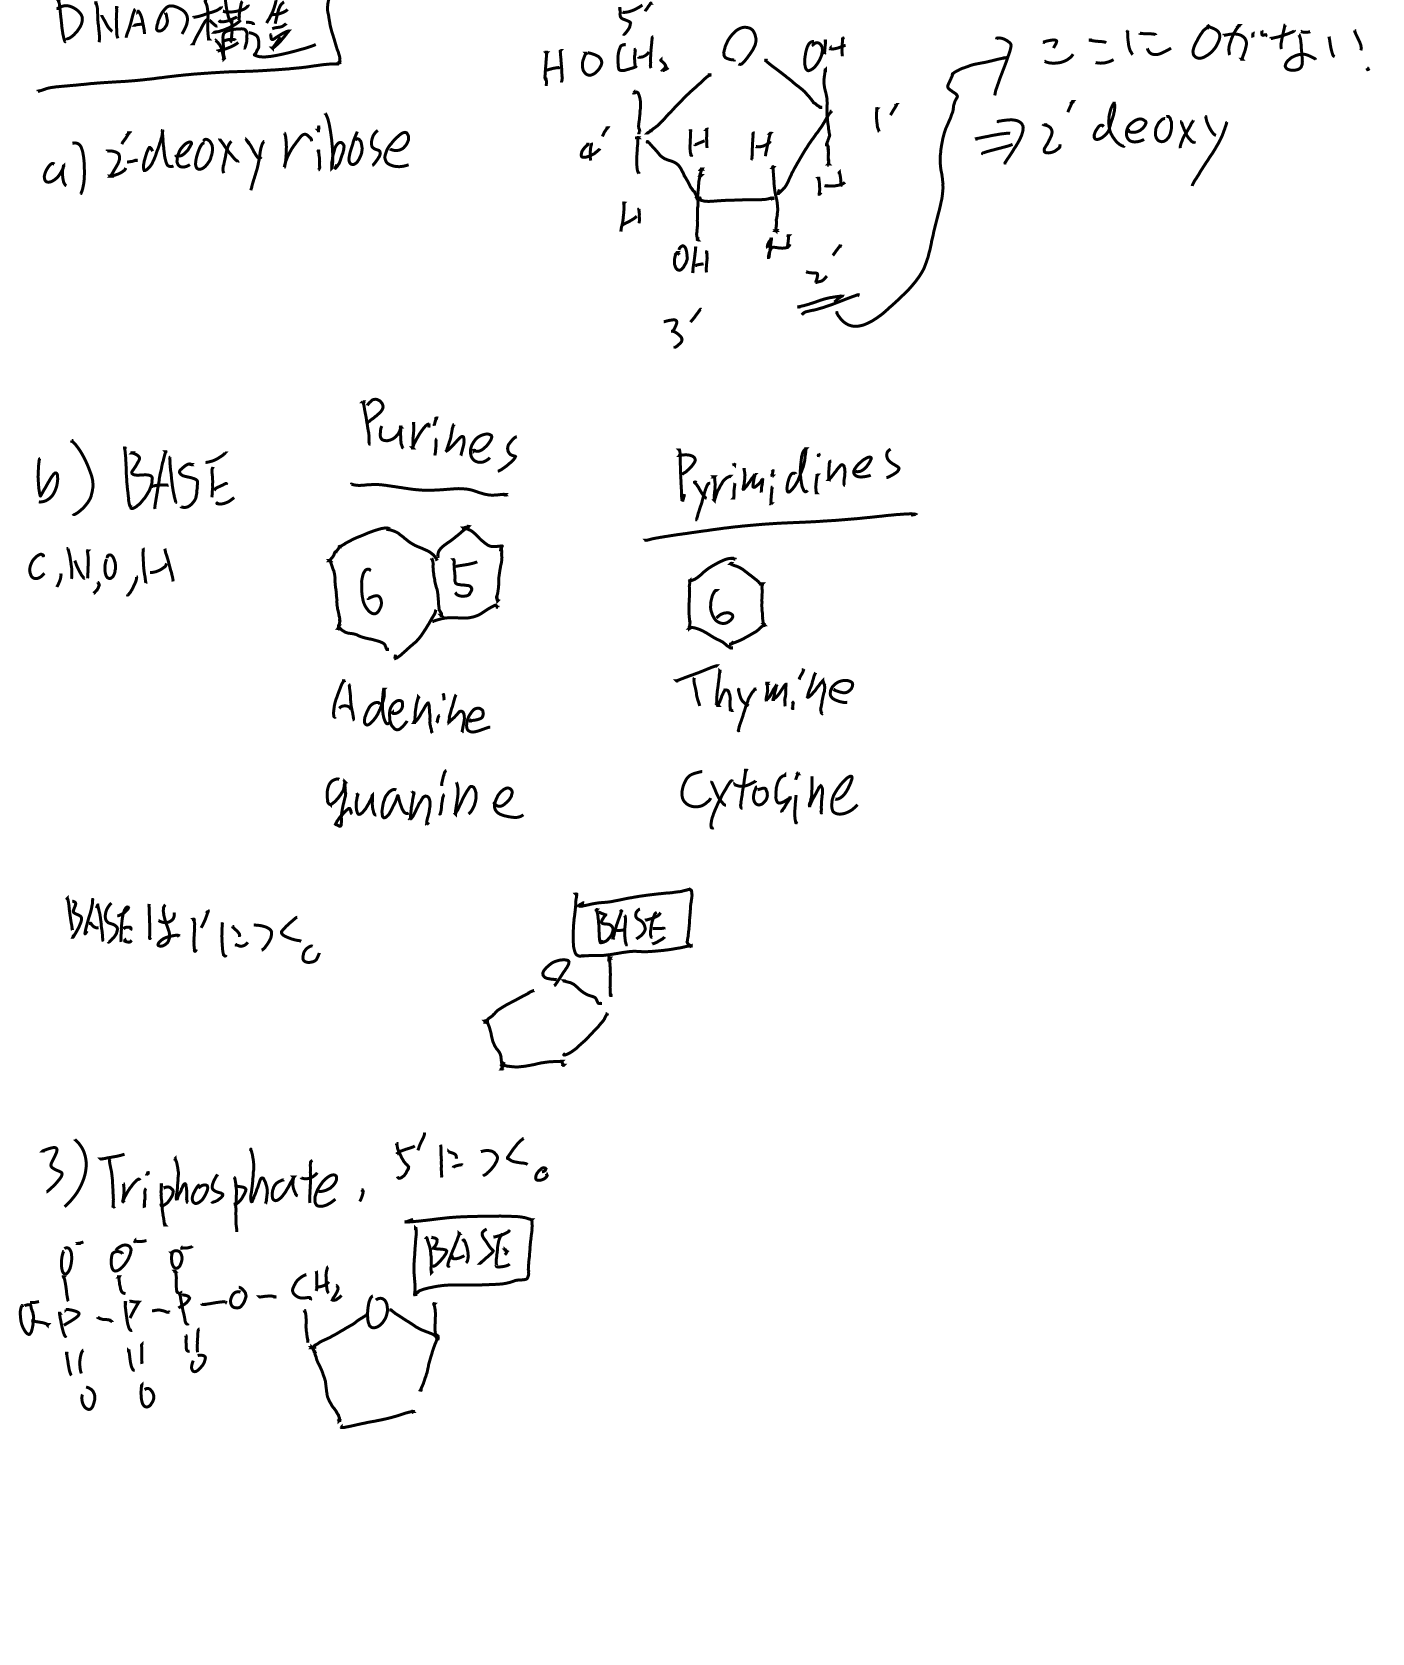 DNAの構造
a) 2'-deoxyribose
5'
HOCH₂ O OH
4' H H 1'
H OH H H
3' 2'
→ ここにOがない!
⇒ 2' deoxy
b) BASE
C, N, O, H
Purines
6 5
Adenine
guanine
Pyrimidines
6
Thymine
Cytosine
BASEは1'につく。
BASE
O
3) Triphosphate, 5'につく。
BASE
O⁻ O⁻ O⁻
O⁻-P-P-P-O-CH₂ O
O O O